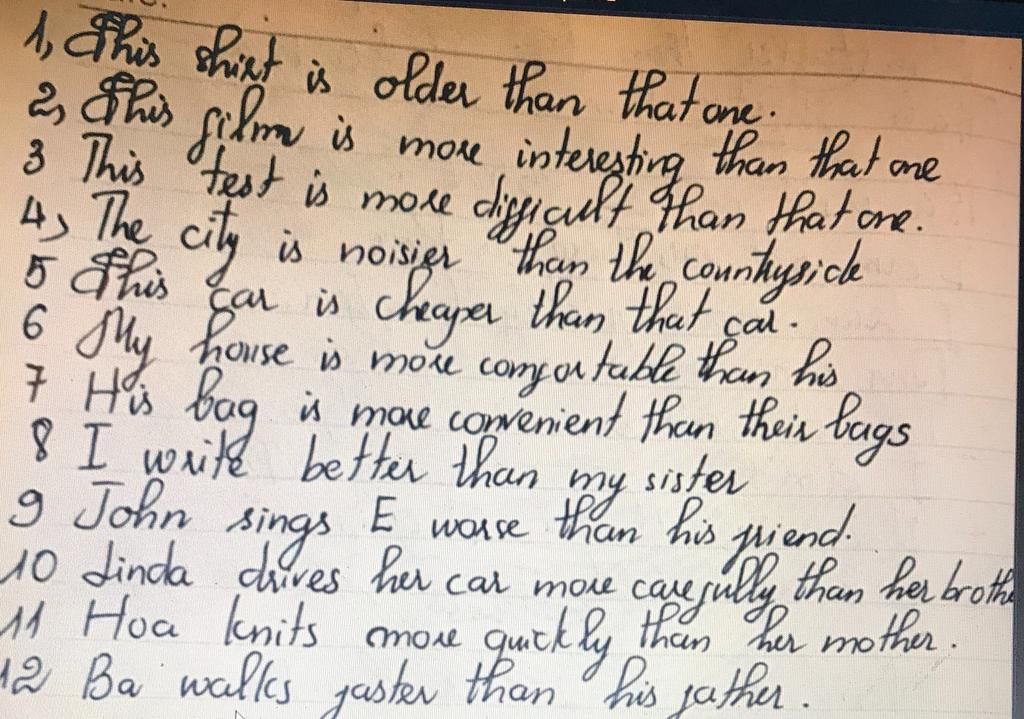 1, This shirt is older than that one.
2, This film is more interesting than that one
3 This test is more difficult than that one.
4, The city is noisier than the countryside
5 This car is cheaper than that car.
6 My house is more comfortable than his
7 His bag is more convenient than their bags
8 I write better than my sister
9 John sings E worse than his friend.
10 Linda drives her car more carefully than her brothe
11 Hoa knits more quickly than her mother.
12 Ba walks faster than his father.